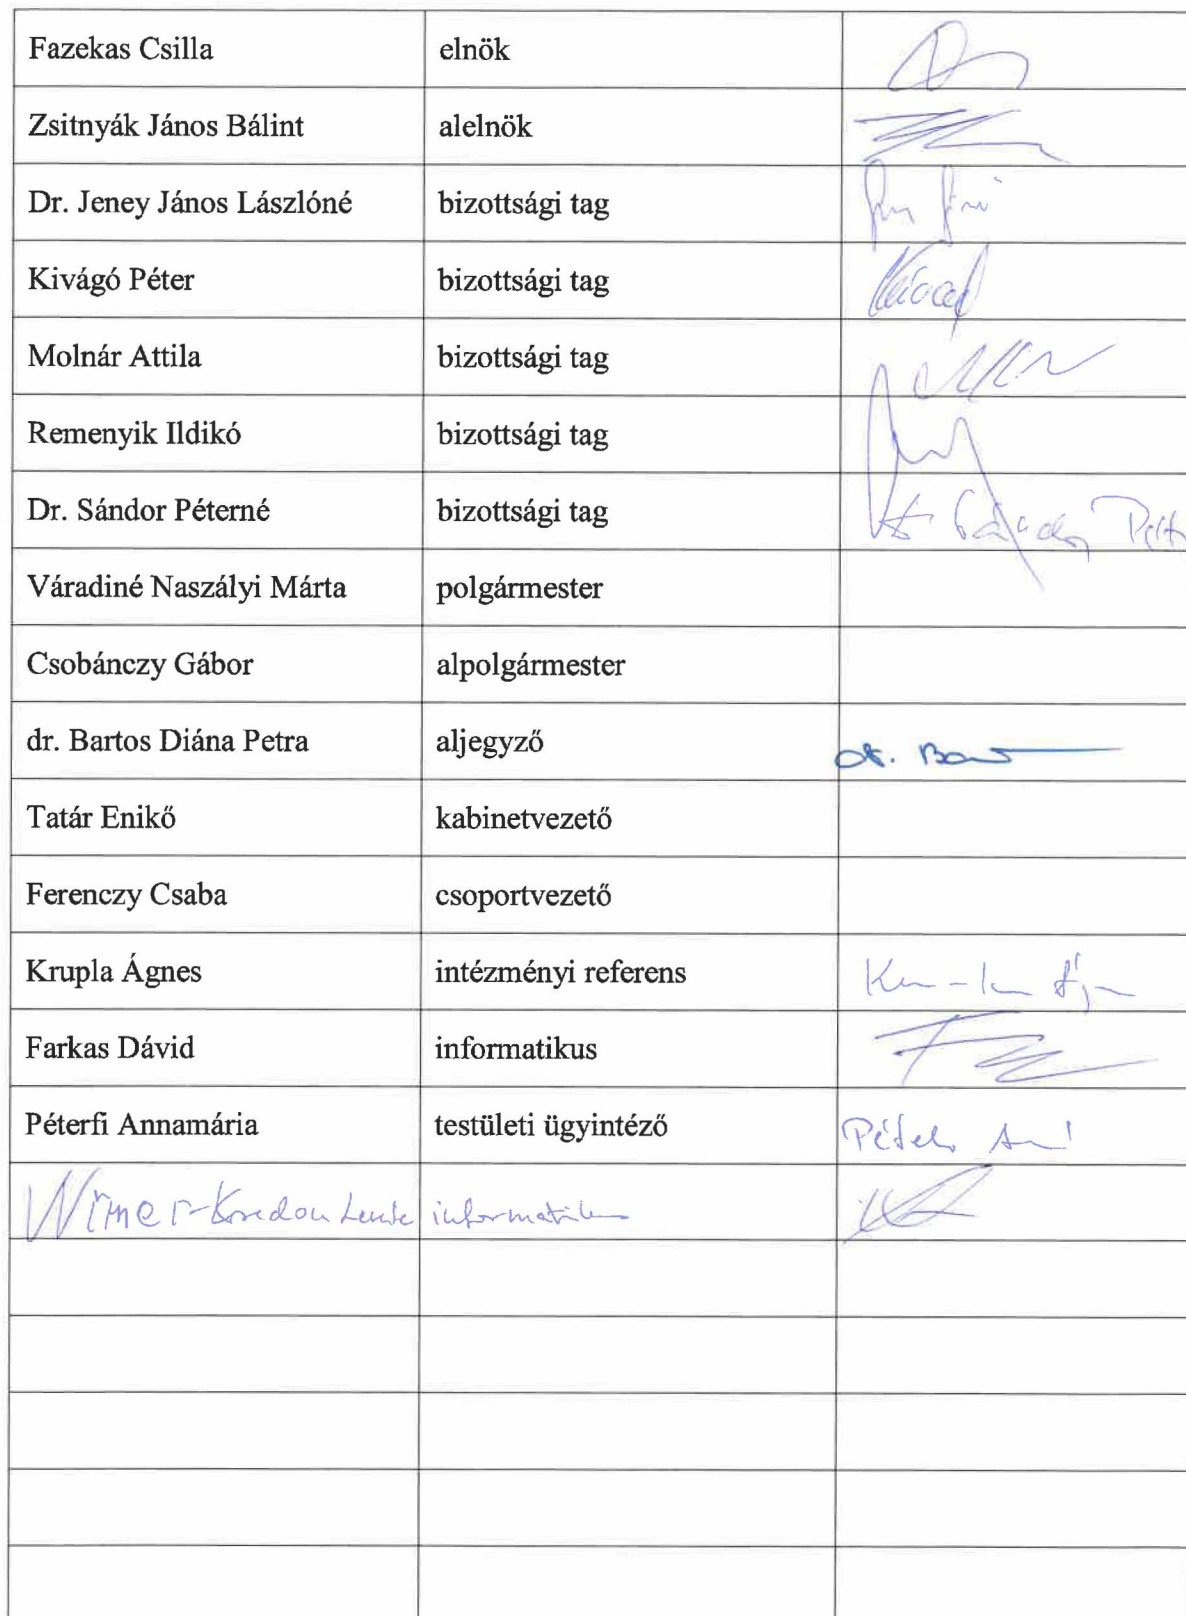 Fazekas Csilla elnök
Zsitnyák János Bálint alelnök
Dr. Jeney János Lászlóné bizottsági tag
Kivágó Péter bizottsági tag
Molnár Attila bizottsági tag
Remenyik Ildikó bizottsági tag
Dr. Sándor Péterné bizottsági tag
Váradiné Naszályi Márta polgármester
Csobánczy Gábor alpolgármester
dr. Bartos Diána Petra aljegyző dr. Bar
Tatár Enikő kabinetvezető
Ferenczy Csaba csoportvezető
Krupla Ágnes intézményi referens
Farkas Dávid informatikus
Péterfi Annamária testületi ügyintéző
informatikus